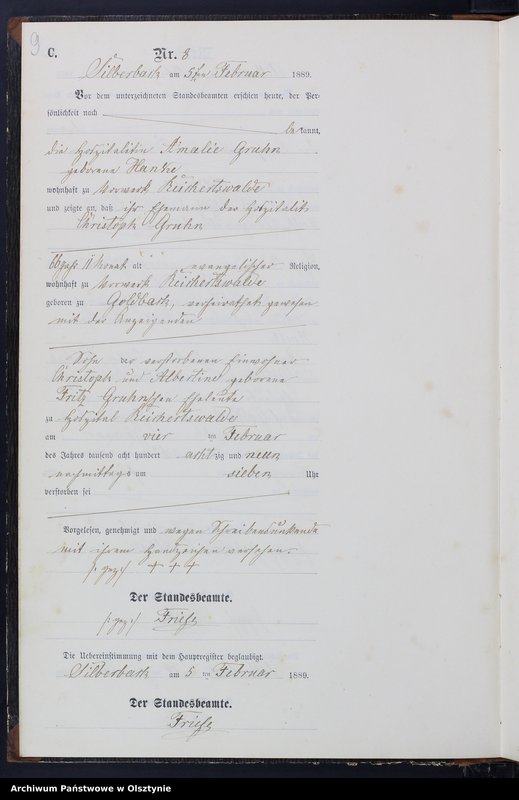 9
C.
Nr. 8
Silberbach am 5ten Februar 1889.
Vor dem unterzeichneten Standesbeamten erschien heute, der Per-
sönlichkeit nach
be kannt,
die Hospitalitin Amalie Gruhn
geborene Hanke
wohnhaft zu Vorwerk Reichertswalde
und zeigte an, daß ihr Ehemann der Hospitalit
Christoph Gruhn
66 Jahr 11 Monat alt evangelischer Religion,
wohnhaft zu Vorwerk Reichertswalde
geboren zu Goldbach, verheirathet gewesen
mit der Anzeigenden
Sohn der verstorbenen Einwohner
Christoph und Albertine geborene
Fritz Gruhn'schen Eheleute
zu Hospital Reichertswalde
am vier ten Februar
des Jahres tausend acht hundert acht zig und neun
nachmittags um sieben Uhr
verstorben sei
Vorgelesen, genehmigt und wegen Schreibensunkunde
mit ihrem Handzeichen versehen.
/: gez :/ + + +
Der Standesbeamte.
/: gez :/ Friese
Die Uebereinstimmung mit dem Hauptregister beglaubigt.
Silberbach am 5 ten Februar 1889.
Der Standesbeamte.
Friese
Archiwum Państwowe w Olsztynie